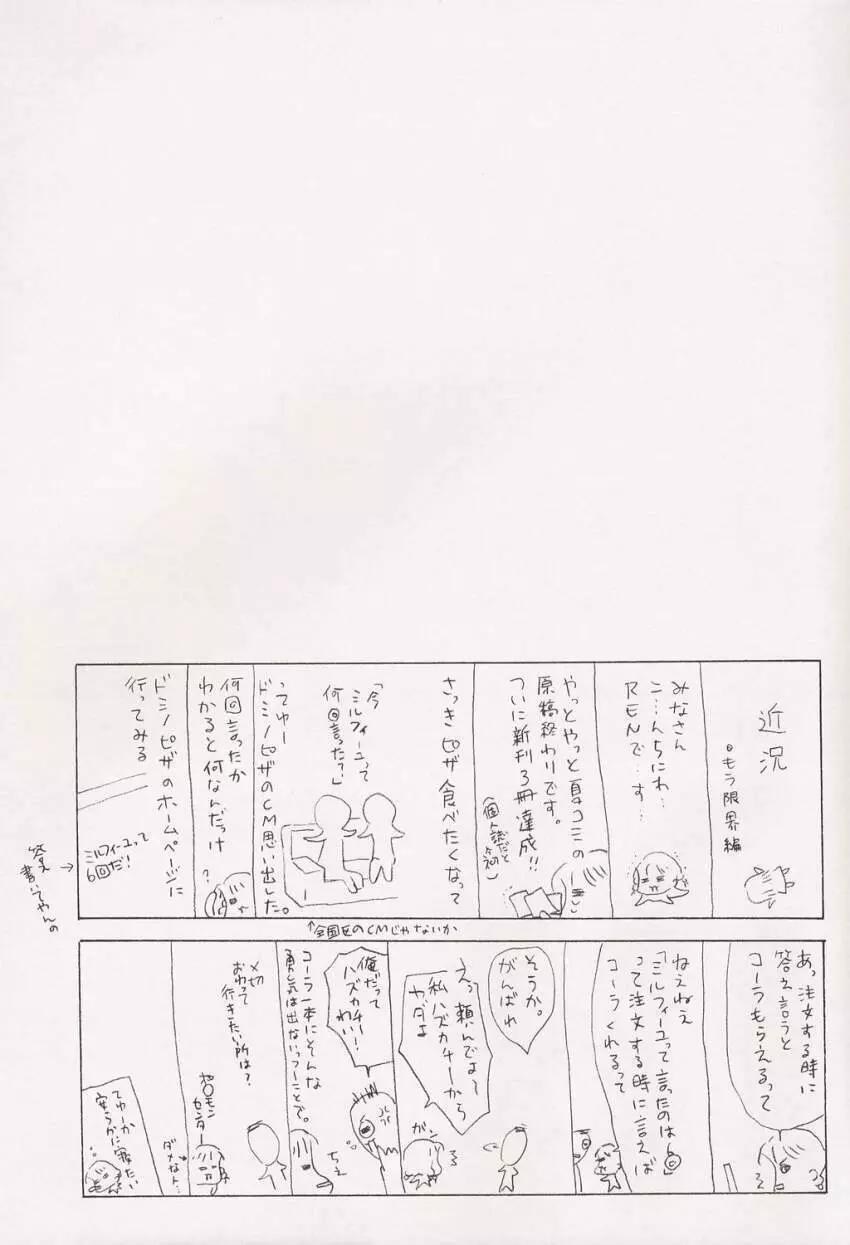 近況
。もう限界編
みなさん
こ…んちにわ…
RENで…す…
やっとやっと夏コミの
原稿終わりです。
ついに新刊3冊達成!!
(個人誌だと初)
さっきピザ食べたくなって
「今
ミルフィーユって
何回言った?」
ってゆー
ドミノピザのCM思い出した。
↑全国区のCMじゃないか
何回言ったか
わかると何なんだっけ
?
ドミノピザのホームページに
行ってみる
ミルフィーユって
6回だ!
答え
書いてやんの
あっ注文する時に
答え言うと
コーラもらえるって
ねえねえ
「ミルフィーユって言ったのは6回」
って注文する時に言えば
コーラくれるって
そうか。
がんばれ
えっ頼んでよ〜
私ハズカチーから
ヤダよ
ガン
俺だって
ハズカチー!
わい!
コーラ一本にそんな
勇気は出ないっつーことで。
ちぇ
〆切
おわって
行きたい所は?
ポ○モン
センター
ダメな人…
てゆーか
安らかに寝たい